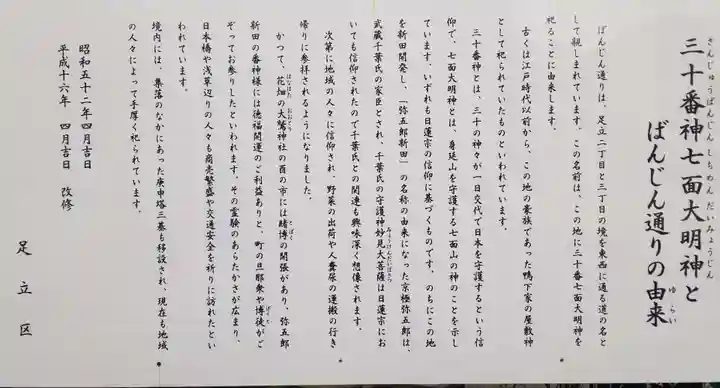 三十番神七面大明神と
さんじゅうばんじん しちめん だいみょうじん
ばんじん通りの由来
ゆらい
ばんじん通りは、足立二丁目と三丁目の境を東西に通る道の名と
して親しまれています。この名前は、この地に三十番七面大明神を
祀ることに由来します。
古くは江戸時代以前から、この地の豪族であった鴨下家の屋敷神
として祀られていたものといわれています。
三十番神とは、三十の神々が一日交代で日本を守護するという信
仰で、七面大明神とは、身延山を守護する七面山の神のことを示し
ています。いずれも日蓮宗の信仰に基づくものです。のちにこの地
を新田開発し、「弥五郎新田」の名称の由来になった京極弥五郎は、
武蔵千葉氏の家臣とされ、千葉氏の守護神妙見大菩薩は日蓮宗にお
みょうけんだいぼさつ
いても信仰されたので千葉氏との関連も興味深く想像されます。
次第に地域の人々に信仰され、野菜の出荷や人糞尿の運搬の行き
帰りに参拝されるようになりました。
かつて、花畑の大鷲神社の酉の市には賭博の開張があり、弥五郎
はなはた おおとり とばく
新田の番神様には徳福開運のご利益ありと、町の旦那衆や博徒がこ
ばくと
ぞってお参りしたといわれます。その霊験のあらたかさが広まり、
日本橋や浅草辺りの人々も商売繁盛や交通安全を祈りに訪れたとい
われています。
境内には、集落のなかにあった庚申塔三基も移設され、現在も地域
の人々によって手厚く祀られています。
昭和五十二年四月吉日
平成十六年 四月吉日 改修
足立区